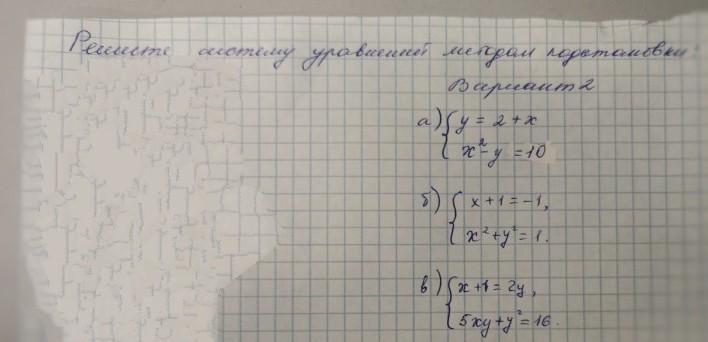 Решите систему уравнений методом подстановки:
Вариант 2
а) { y = 2 + x
x² - y = 10
б) { x + 1 = -1,
x² + y² = 1.
в) { x + 1 = 2y,
5xy + y² = 16.